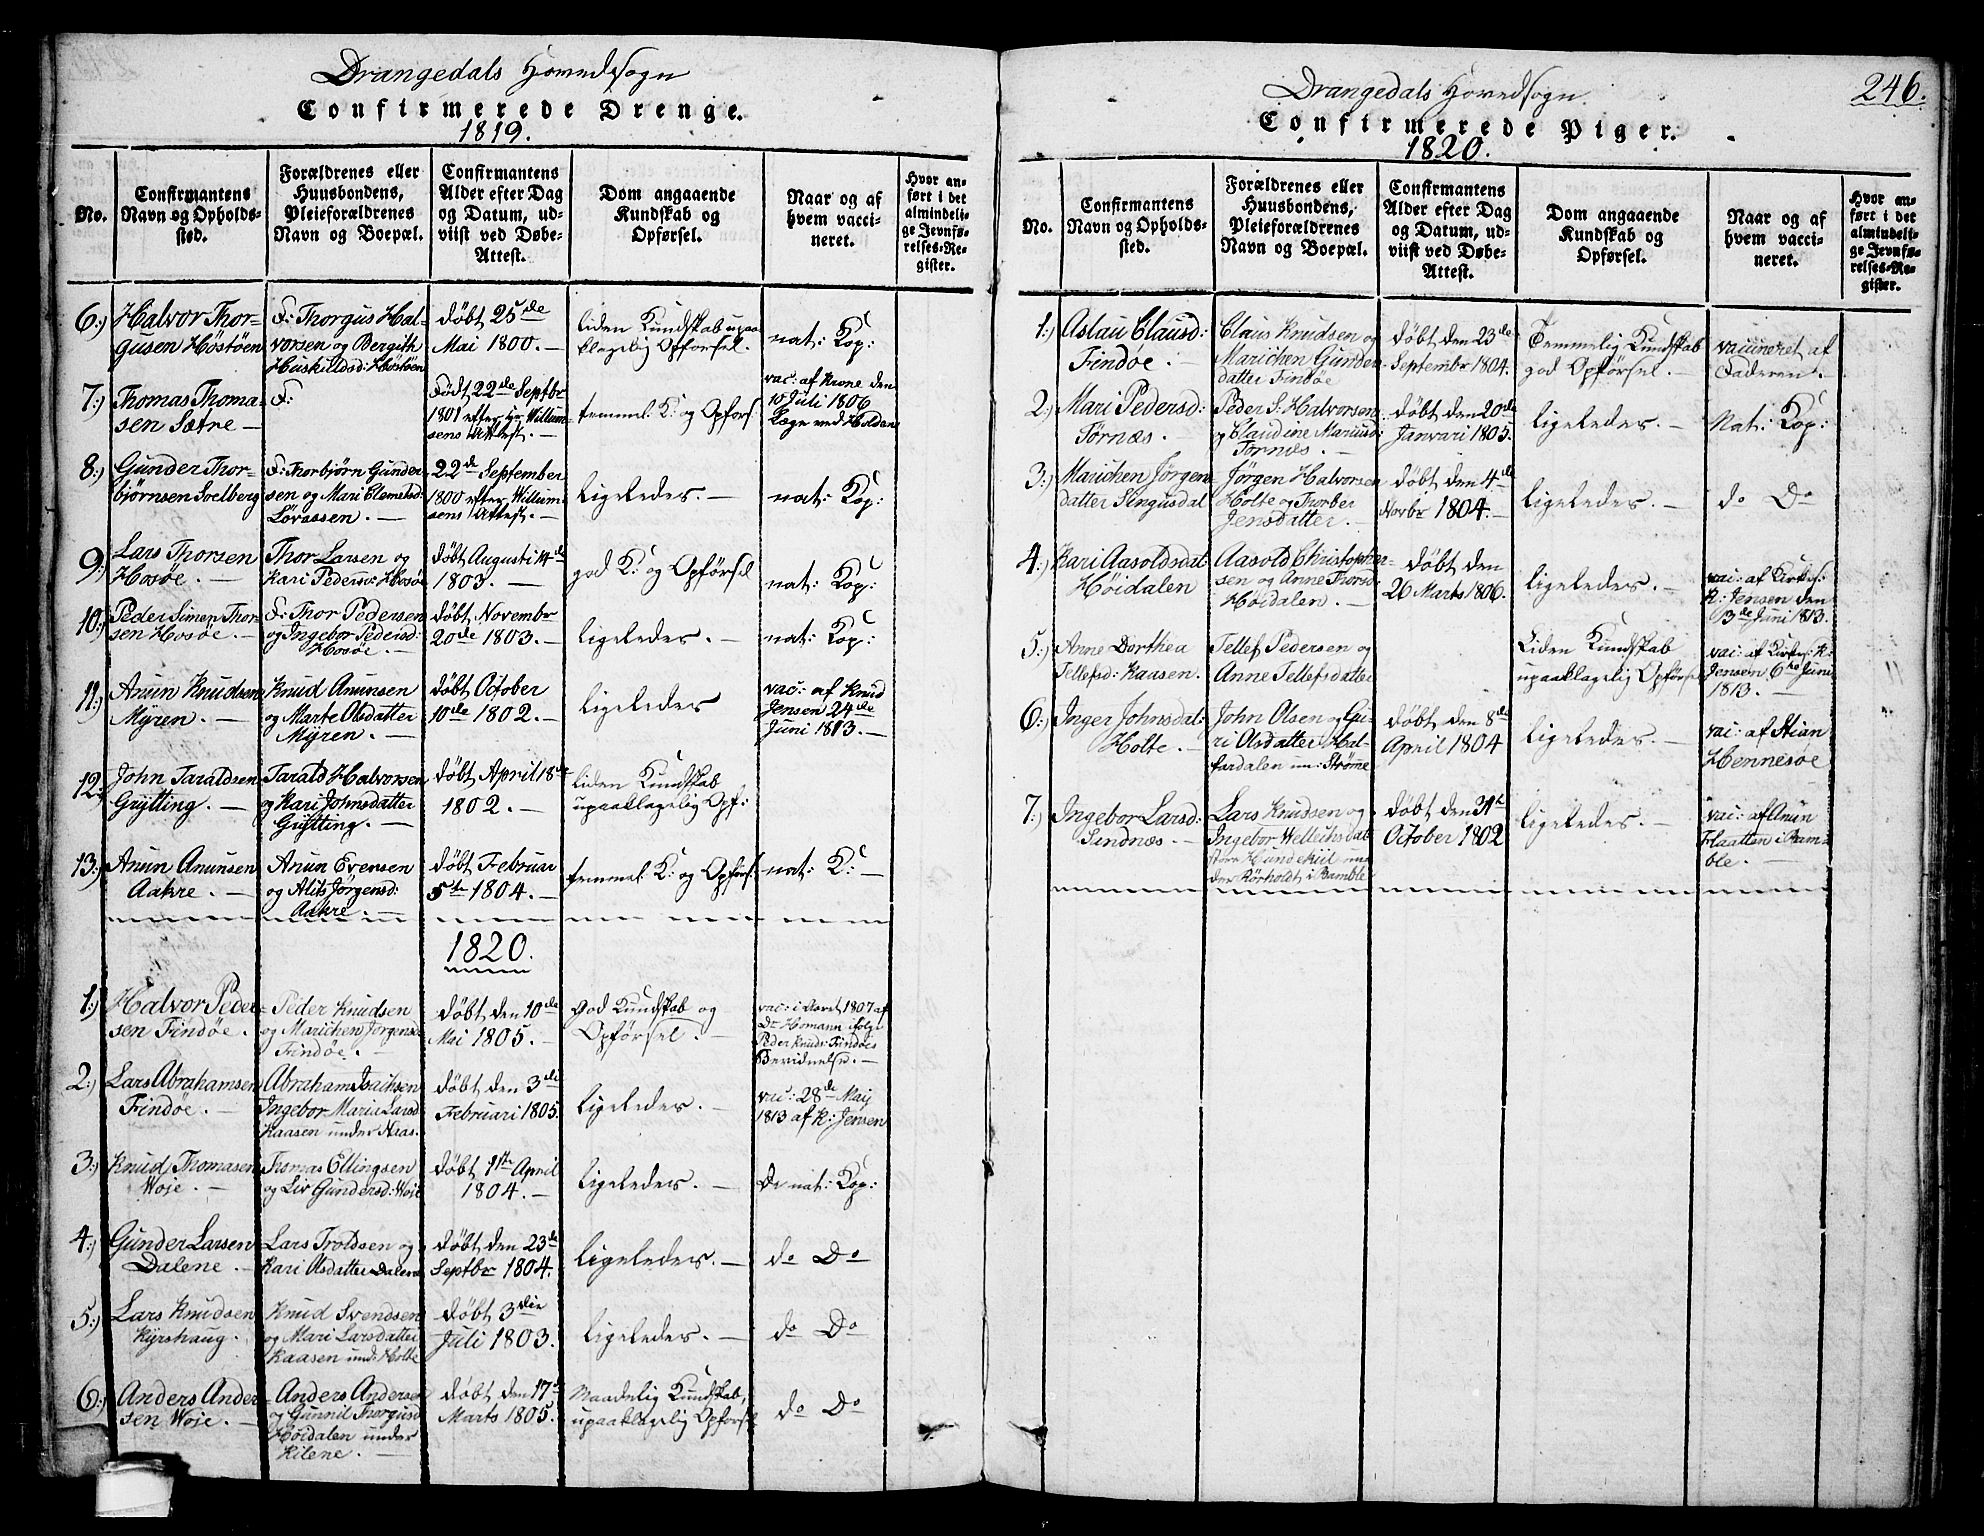 Drangedals Hovedsogn
Confirmerede Drenge.
1819.
No.
Confirmantens
Navn og Opholds-
sted.
Forældrenes eller
Huusbondens,
Pleieforældrenes
Navn og Boepæl.
Confirmantens
Alder efter Dag
og Datum, ud-
viist ved Døbe-
Attest.
Dom angaaende
Kundskab og
Opførsel.
Naar og af
hvem vacci-
neret.
Hvor an-
ført i det
almindeli-
ge Jevnfø-
relses-Re-
gister.
6.)
Halvor Thor-
gusen Høstøen
F: Thorgus Hal-
vorsen og Bergith
Huskildsd: Høstøen
døbt 25de
Mai 1800. —
liden Kundskab upaa-
klagelig Opførsel.
nat: Kop:
7.)
Thomas Thoma-
sen Sætre —
F:
Født 22de Septbr
1801 efter Hr. Willum-
sens Attest. —
temmel: K: og Opførs
vac: af Krone den
10 Juli 1806
Læge ved Holden
8.)
Gunder Thor-
bjørnsen Soelberg
F: Thorbjørn Gunder
sen og Mari Clemetsd:
Løvaasen. —
22de September
1800 efter Willum-
sens Attest. —
ligeledes. —
nat: Kop:
9.)
Lars Thorsen
Hosøe. —
Thor Larsen og
Kari Pedersd: Hosøe
døbt Augusti 14de
1803. —
god K: og Opførsel
nat: Kop:
10.)
Peder Simen Thor-
sen Hosøe. —
F: Thor Pedersen
og Ingebor Pedersd:
Hosøe. —
døbt Novembr
20de 1803. —
ligeledes. —
nat: Kop:
11.)
Anun Knudsen
Myren. —
Knud Anunsen
og Marte Olsdatter
Myren. —
døbt October
10de 1802. —
ligeledes
vac: af Knud
Jensen 24de
Juni 1813. —
12.)
John Taraldsen
Grytting. —
Tarald Halvorsen
og Kari Johnsdatter
Grytting. —
døbt April 18de
1802. —
liden Kundskab
upaaklagelig Opf:
13.)
Anun Anunsen
Aakre. —
Anun Evensen
og Alis Jørgensd:
Aakre. —
døbt Februar
5te 1804. —
temmel: K: og Opførs
nat: K: —
1820.
1.)
Halvor Peder-
sen Findøe.
Peder Knudsen
og Marichen Jørgensd
Findøe. —
døbt den 10de
Mai 1805. —
god Kundskab og
Opførsel. —
vac: i Aaret 1807 af
Dr Homann ifølge
Peder Knuds: Findøes
Bevidnelse. —
2.)
Lars Abrahamsen
Findøe. —
Abraham Isachsen
Ingebor Maria Larsd
Kaasen under Naas.
døbt den 3die
Februari 1805.
ligeledes. —
vac: 28de Maij
1813 af K: Jensen
3.)
Knud Thomasen
Woje. —
Thomas Ellingsen
og Liv Gundersd: Woje
døbt 1ste April
1804. —
ligeledes. —
De nat: Kop:
4.)
Gunder Larsen
Dalene. —
Lars Troldsen og
Kari Olsdatter Dalene
døbt den 23de
Septbr 1804.
ligeledes. —
do Do
5.)
Lars Knudsen
Kyrshaug.
Knud Svendsen
og Mari Larsdatter
Kaasen und: Holte
døbt 3die
Juli 1803.
ligeledes. —
do Do
6.)
Anders Ander-
sen Woje. —
Anders Andersen
og Gunnil Thorgusd
Høidalen under
Kilene. —
døbt den 17de
Marts 1805.
Maadelig Kundskab,
upaaklagelig Opførsel
do Do
246.
Drangedals Hovedsogn.
Confirmerede Piger.
1820.
No.
Confirmantens
Navn og Opholds-
sted.
Forældrenes eller
Huusbondens,
Pleieforældrenes
Navn og Boepæl.
Confirmantens
Alder efter Dag
og Datum, ud-
viist ved Døbe-
Attest.
Dom angaaende
Kundskab og
Opførsel.
Naar og af
hvem vacci-
neret.
Hvor an-
ført i det
almindeli-
ge Jevnfø-
relses-Re-
gister.
1.)
Aslau Clausd:
Findøe. —
Claus Knudsen og
Marichen Gunder
datter Findøe
døbt den 23de
September 1804.
Temmelig Kundskab
god Opførsel. —
vacuneret af
Faderen. —
2.)
Mari Pedersd:
Törnæs. —
Peder S. Halvorsen
og Claudine Mariusd:
Tornæs. —
døbt den 20de
Janvari 1805.
ligeledes. —
Nat: Kop:
3.)
Marichen Jørgen
datter Singusdal
Jørgen Halvorsen
Holte og Thorber
Jensdatter. —
døbt den 4de
Novbr 1804. —
ligeledes. —
do Do
4.)
Kari Aasoldsdat
Høidalen
Aasold Christophær-
sen og Anne Thorsd:
Høidalen. —
døbt den
26 Marts 1806.
ligeledes. —
vac: af Kirkes:
K: Jensen den
13de Juni 1813.
5.)
Anne Dorthea
Tellefsd: Kaasen.
Tellef Pedersen og
Anne Tellefsdatter
Liden Kundskab
upaaklagelig Opførsel
vac: af Kirkes: K:
Jensen 6te Juni
1813. —
6.)
Inger Johnsdat:
Holte. —
John Olsen og Gu-
ri Olsdatter Hal-
fardalen un: Strøme
døbt den 8de
April 1804
ligeledes. —
vac: af Stian
Hennesøe
7.)
Ingebor Larsd:
Sindnæs. —
Lars Knudsen og
Ingebor Wellichsdat
store Hundekiil un-
der Rørholdt i Bamble
døbt den 31te
October 1802
ligeledes. —
vac: af Anun
Flaatten i Bam-
ble. —